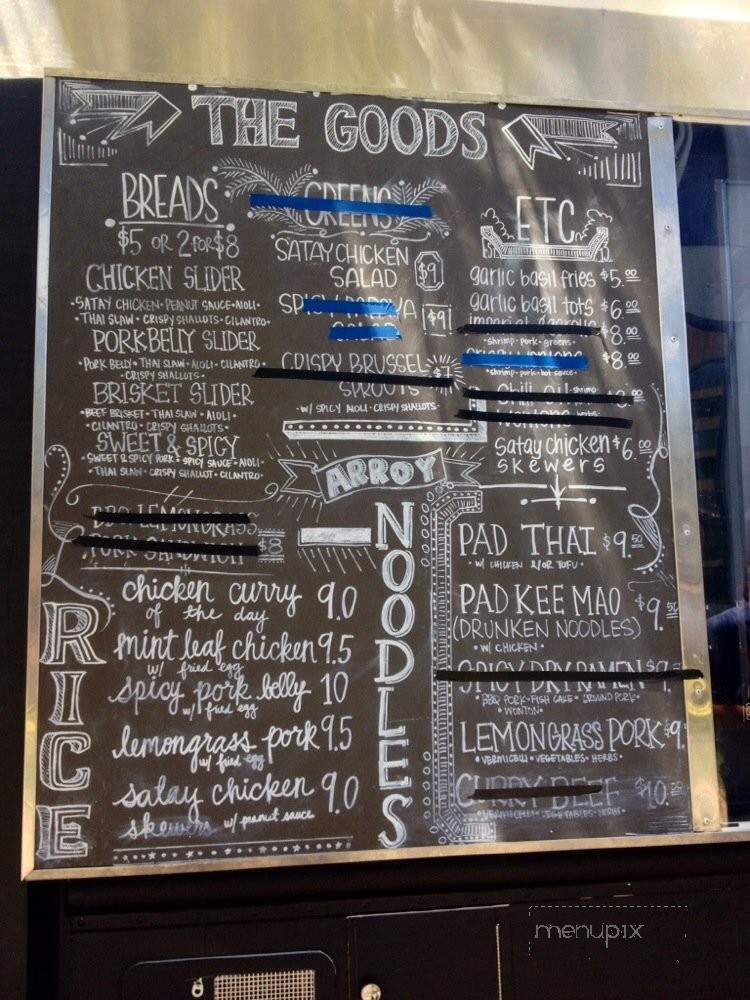 THE GOODS
BREADS
$5 OR 2 FOR $8
CHICKEN SLIDER
• SATAY CHICKEN • PEANUT SAUCE • AIOLI •
THAI SLAW • CRISPY SHALLOTS • CILANTRO •
PORKBELLY SLIDER
• PORK BELLY • THAI SLAW • AIOLI • CILANTRO •
CRISPY SHALLOTS •
BRISKET SLIDER
• BEEF BRISKET • THAI SLAW • AIOLI •
CILANTRO • CRISPY SHALLOTS •
SWEET & SPICY
• SWEET & SPICY PORK • SPICY SAUCE • AIOLI •
THAI SLAW • CRISPY SHALLOT • CILANTRO •
BBQ LEMONGRASS
PORK SANDWICH $8
GREENS
SATAY CHICKEN
SALAD $9
SPICY PAPAYA
SALAD $9
CRISPY BRUSSEL
SPROUTS $7
• W/ SPICY AIOLI • CRISPY SHALLOTS •
ETC
garlic basil fries $5.00
garlic basil tots $6.00
imperial eggrolls $8.00
• shrimp • pork • greens •
crispy wontons $8.00
• shrimp • pork • hot sauce •
Chili Oil shrimp
Wontons herbs
Satay chicken $6.00
skewers
ARROY
RICE
chicken curry 9.0
of the day
mint leaf chicken 9.5
w/ fried egg
spicy pork belly 10
w/ fried egg
lemongrass pork 9.5
w/ fried egg
satay chicken 9.0
skewers w/ peanut sauce
NOODLES
PAD THAI $9.50
• W/ CHICKEN &/OR TOFU •
PAD KEE MAO $9.50
(DRUNKEN NOODLES)
• W/ CHICKEN •
SPICY DRY RAMEN $9.
• BBQ PORK • FISH CAKE • GROUND PORK •
• WONTON •
LEMONGRASS PORK $9.
• VERMICELLI • VEGETABLES • HERBS •
CURRY BEEF $10.
• VERMICELLI • VEGETABLES • HERBS •
menupix